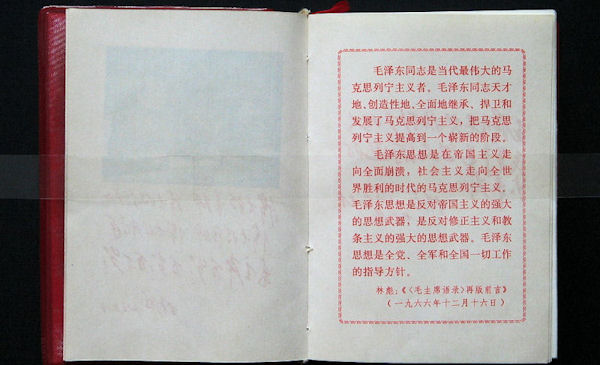 毛泽东同志是当代最伟大的马
克思列宁主义者。毛泽东同志天才
地、创造性地、全面地继承、捍卫和
发展了马克思列宁主义，把马克思
列宁主义提高到一个崭新的阶段。
毛泽东思想是在帝国主义走
向全面崩溃，社会主义走向全世
界胜利的时代的马克思列宁主义。
毛泽东思想是反对帝国主义的强大
的思想武器，是反对修正主义和教
条主义的强大的思想武器。毛泽东
思想是全党、全军和全国一切工作
的指导方针。
林彪：《〈毛主席语录〉再版前言》
（一九六六年十二月十六日）